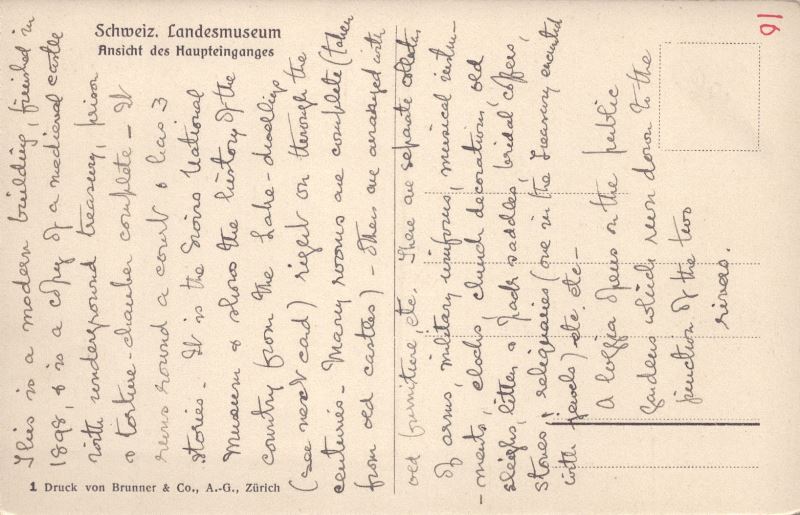 Schweiz. Landesmuseum
Ansicht des Haupteinganges
This is a modern building, finished in
1898, & is a copy of a medieval castle
with underground treasury, prison
& torture-chamber complete - It
runs round a court & has 3
stories - It is the Swiss National
Museum & shows the history of the
country from the Lake-dwellings
(see next card) right on through the
centuries - Many rooms are complete (taken
from old castles) - Others are arranged with
old furniture, etc. There are separate
of arms, military uniforms, musical instru-
-ments, clocks, church decorations, old
sleighs, litters & pack saddles, bridal coffers,
stoves, reliquaries (one in the Treasury encrusted
with jewels) etc. etc -
A loggia opens on the public
gardens which run down to the
junction of the two
rivers.
1 Druck von Brunner & Co., A.-G., Zürich
91